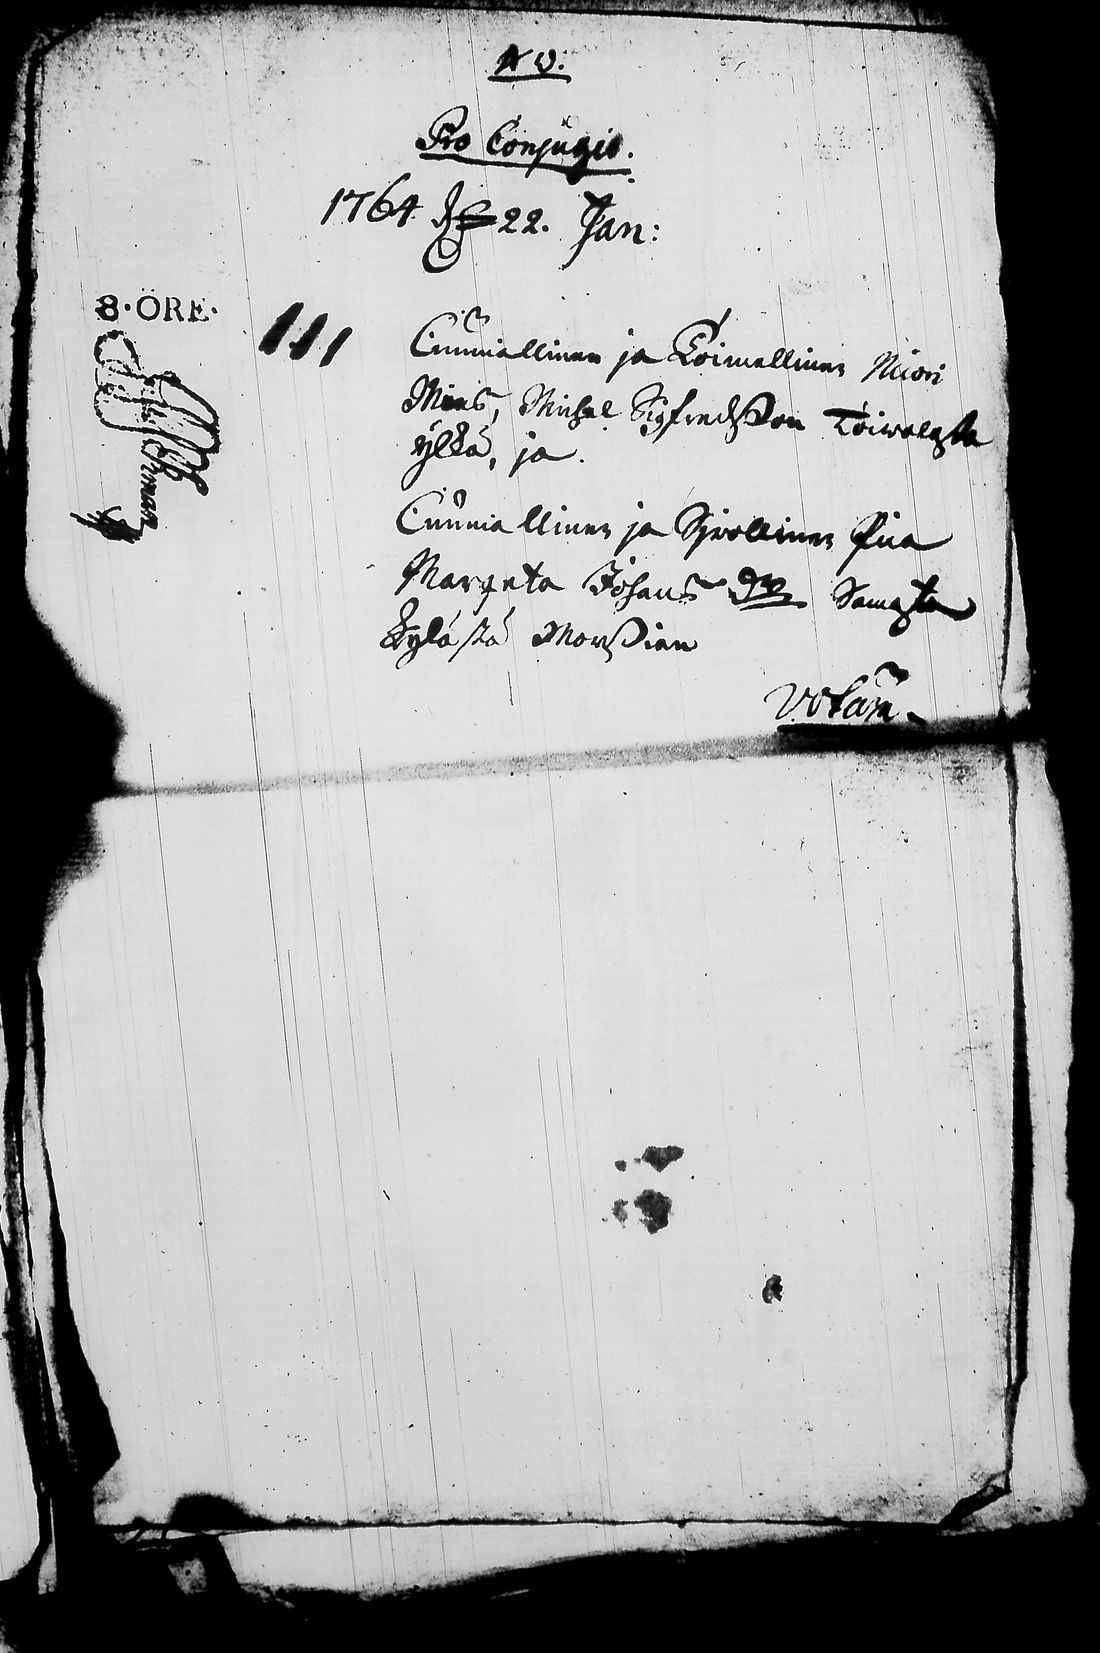 N W:
Pro Conjugio.
1764 d 22. Jan:
8·ÖRE·
111
Cunniallinen ja Toimellinen Nuori
Mies, Michel Sigfredsson Toiwolasta
ylkä, ja
Cunniallinen ja Sjwollinen Piia
Margeta Johans dr Samasta
Kylästä Morsian
Votum